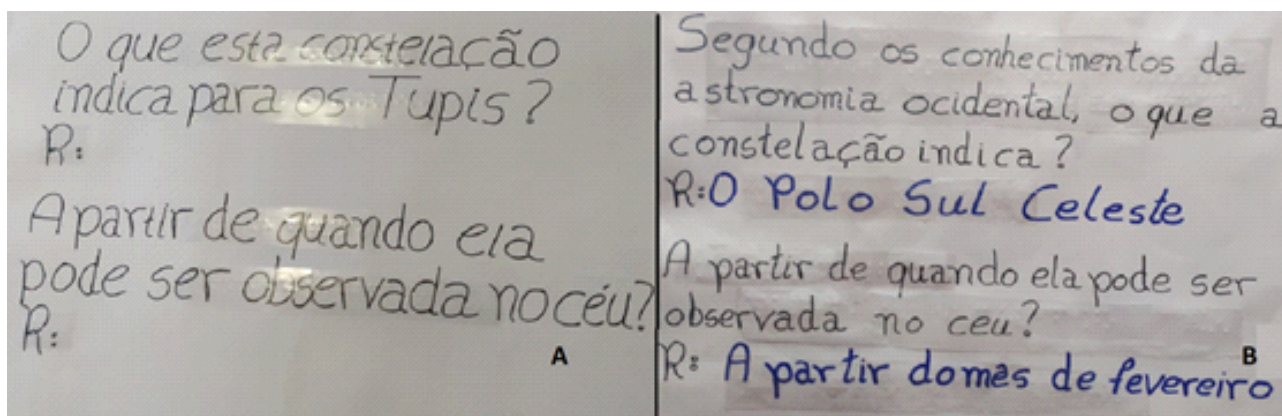 O que esta constelação
indica para os Tupis?
R:
A partir de quando ela
pode ser observada no céu?
R:
A
Segundo os conhecimentos da
astronomia ocidental, o que a
constelação indica?
R:O Polo Sul Celeste
A partir de quando ela pode ser
observada no ceu?
R: A partir do mes de fevereiro
B